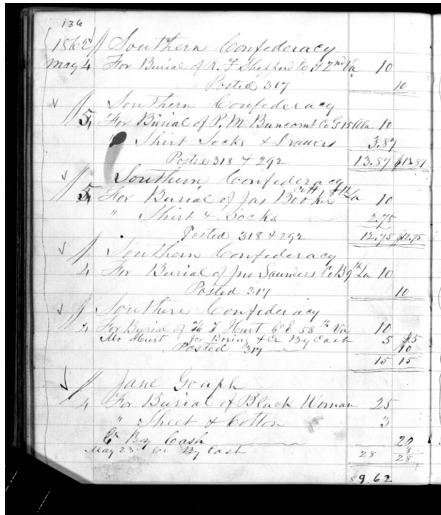 136
1862 Southern Confederacy
May 4 For Burial of R. F Shepperd Co H 2nd Va 10
Posted 317 10
Southern Confederacy
5 For Burial of P. M. Buncomb Co G 15 Ala 10
" Shirt Socks & Drawers 3.87
Posted 318 & 292 13.87 $13.87
Southern Confederacy
5 For Burial of Jas Booker La 10
" Shirt & Socks 2.75
Posted 318 & 292 12.75 $12.75
Southern Confederacy
4 For Burial of Jno Saunders Co B 9th La 10
Posted 317 10
Southern Confederacy
4 For Burial of H. T Hurt Co E 58th Va 10
Mr Hurt for Boxing &c Cr By Cash 5 $5
Posted 317 10
15 15
Jane Gouph
4 For Burial of Black Woman 25
" Sheet & Cotton 3
Cr By Cash 20
May 23 Cr By Cash 8
28 28
89.62